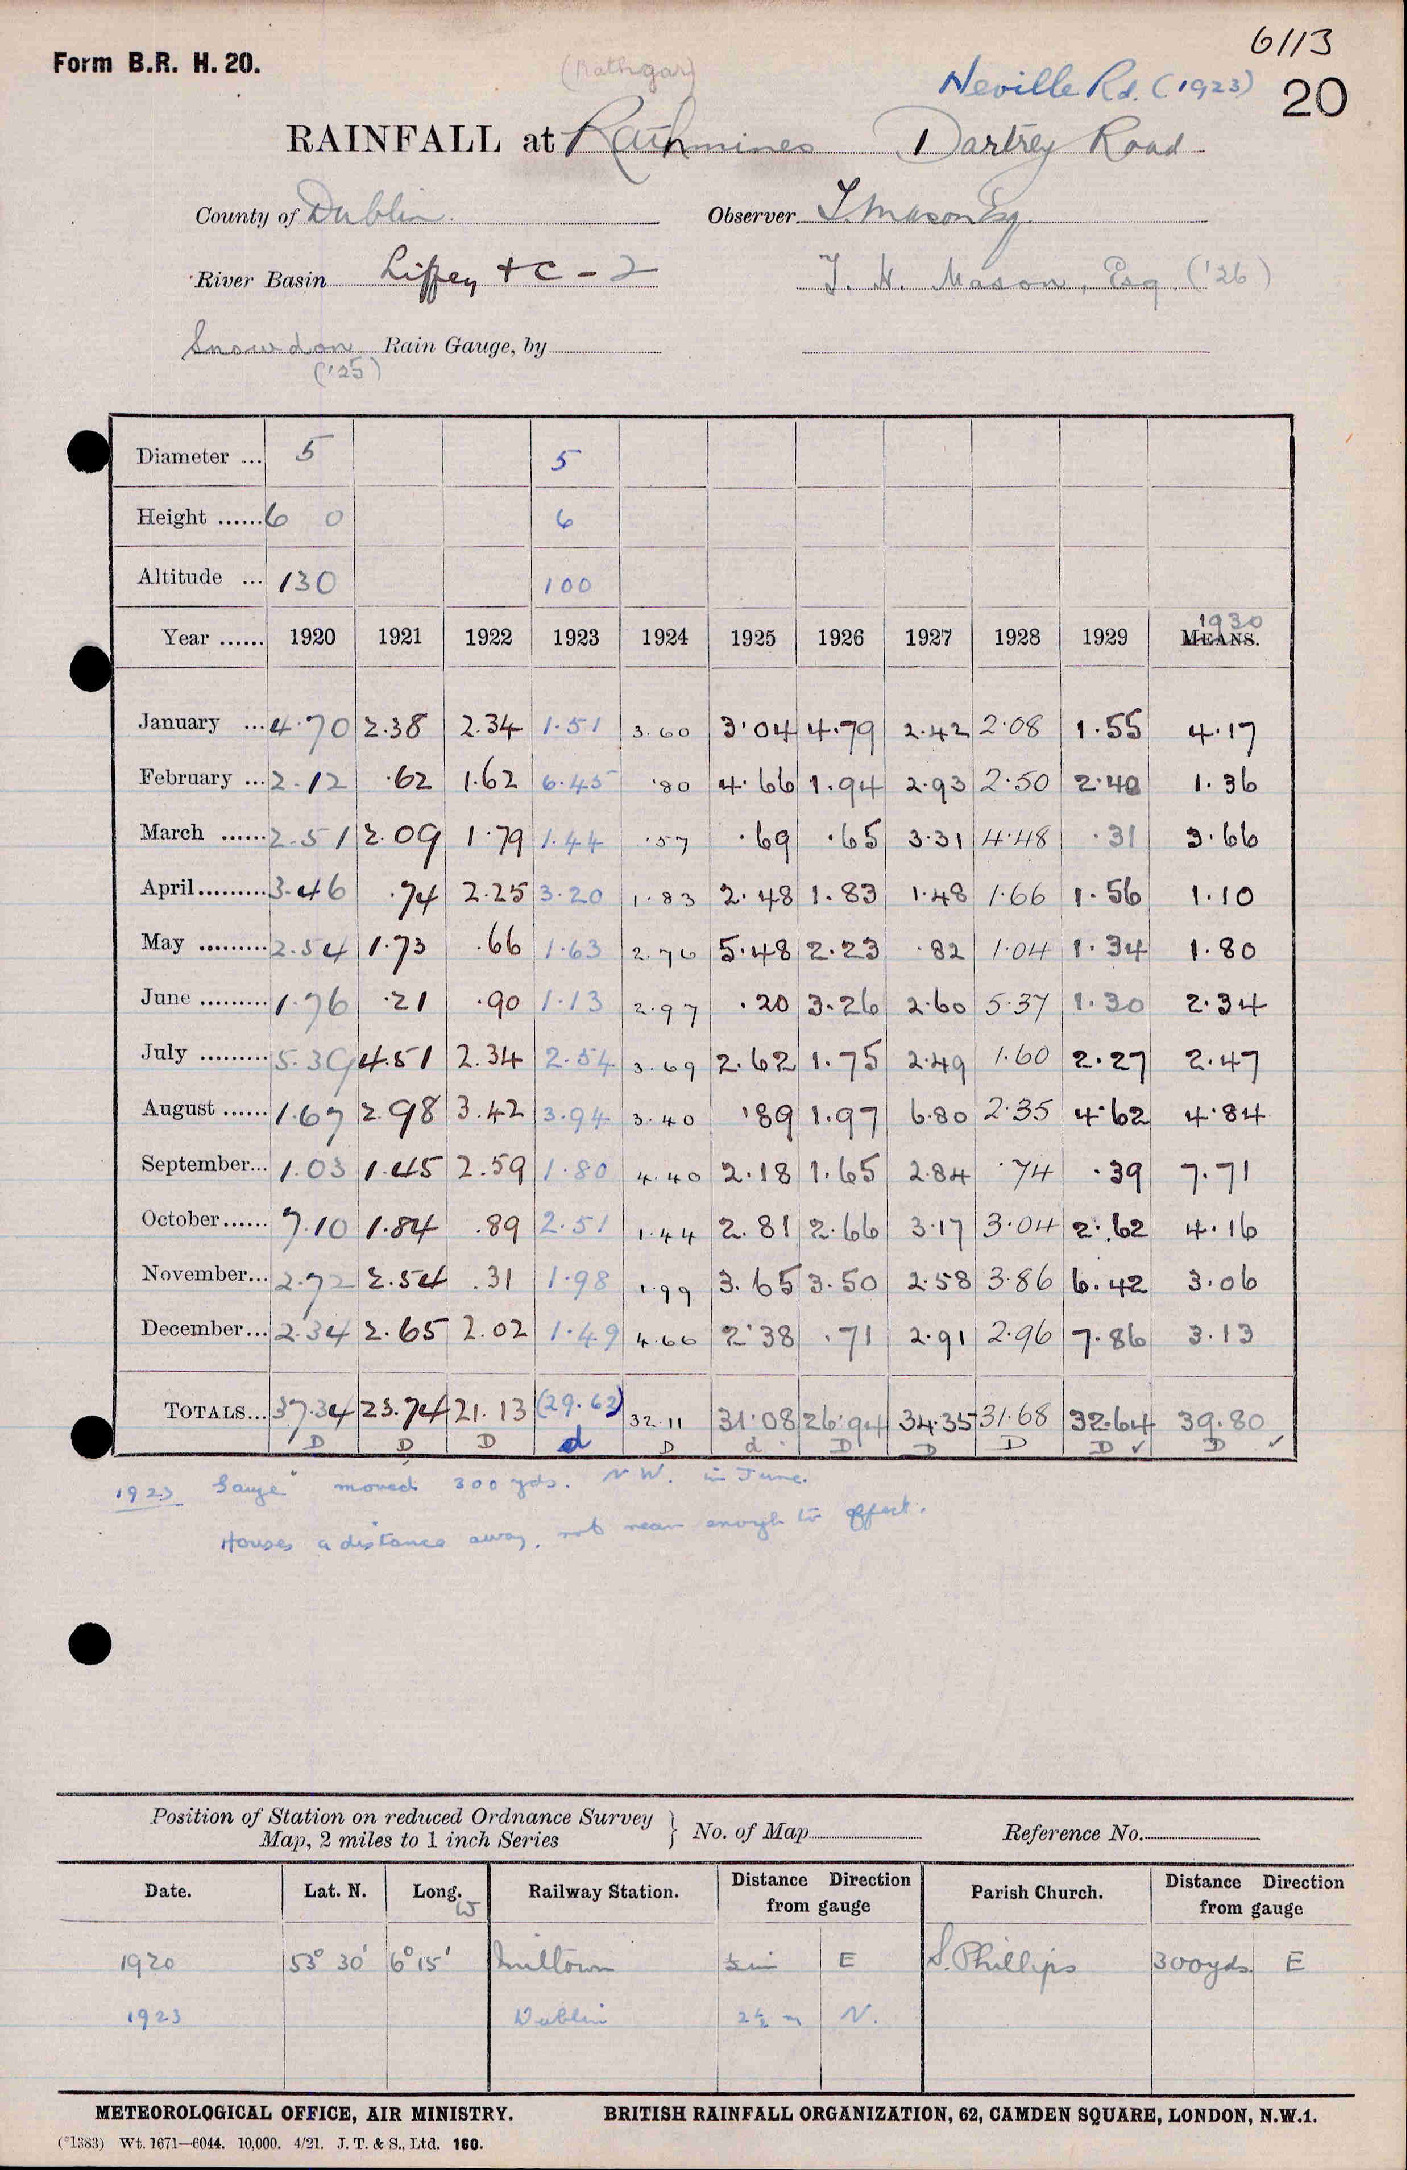 6113
Form B.R. H. 20.
(Rathgar)
Neville Rd. (1923)
20
RAINFALL at Rathmines 1 Dartrey Road
County of Dublin. Observer T. Mason Esq
River Basin Liffey + C - 2 T. H. Mason, Esq. ('26)
Snowdon Rain Gauge, by
('25)
Diameter ... 5 5
Height ...... 6 0 6
Altitude ... 130 100
1930
Year ...... 1920 1921 1922 1923 1924 1925 1926 1927 1928 1929 MEANS.
January ... 4.70 2.38 2.34 1.51 3.60 3.04 4.79 2.42 2.08 1.55 4.17
February ... 2.12 .62 1.62 6.45 .80 4.66 1.94 2.93 2.50 2.40 1.36
March ...... 2.51 2.09 1.79 1.44 .57 .69 .65 3.31 4.48 .31 3.66
April......... 3.46 .74 2.25 3.20 1.83 2.48 1.83 1.48 1.66 1.56 1.10
May ......... 2.54 1.73 .66 1.63 2.76 5.48 2.23 .82 1.04 1.34 1.80
June ......... 1.76 .21 .90 1.13 2.97 .20 3.26 2.60 5.37 1.30 2.34
July ......... 5.39 4.51 2.34 2.54 3.69 2.62 1.75 2.49 1.60 2.27 2.47
August ...... 1.67 2.98 3.42 3.94 3.40 .89 1.97 6.80 2.35 4.62 4.84
September... 1.03 1.45 2.59 1.80 4.40 2.18 1.65 2.84 .74 .39 7.71
October...... 7.10 1.84 .89 2.51 1.44 2.81 2.66 3.17 3.04 2.62 4.16
November... 2.72 2.54 .31 1.98 1.99 3.65 3.50 2.58 3.86 6.42 3.06
December... 2.34 2.65 2.02 1.49 4.66 2.38 .71 2.91 2.96 7.86 3.13
TOTALS... 37.34 23.74 21.13 (29.62) 32.11 31.08 26.94 34.35 31.68 32.64 39.80
D D D d D d D D D D ✓ D ✓
1923 Gauge moved 300 yds. N W. in June.
Houses a distance away, not near enough to affect.
Position of Station on reduced Ordnance Survey
Map, 2 miles to 1 inch Series } No. of Map Reference No.
Date. Lat. N. Long. W Railway Station. Distance Direction from gauge Parish Church. Distance Direction from gauge
1920 53° 30' 6° 15' Milltown ½ mi E S. Phillips 300 yds. E
1923 Dublin 2½ m N.
METEOROLOGICAL OFFICE, AIR MINISTRY. BRITISH RAINFALL ORGANIZATION, 62, CAMDEN SQUARE, LONDON, N.W.1.
(*1383) Wt. 1671—6044. 10,000. 4/21. J. T. & S., Ltd. 160.